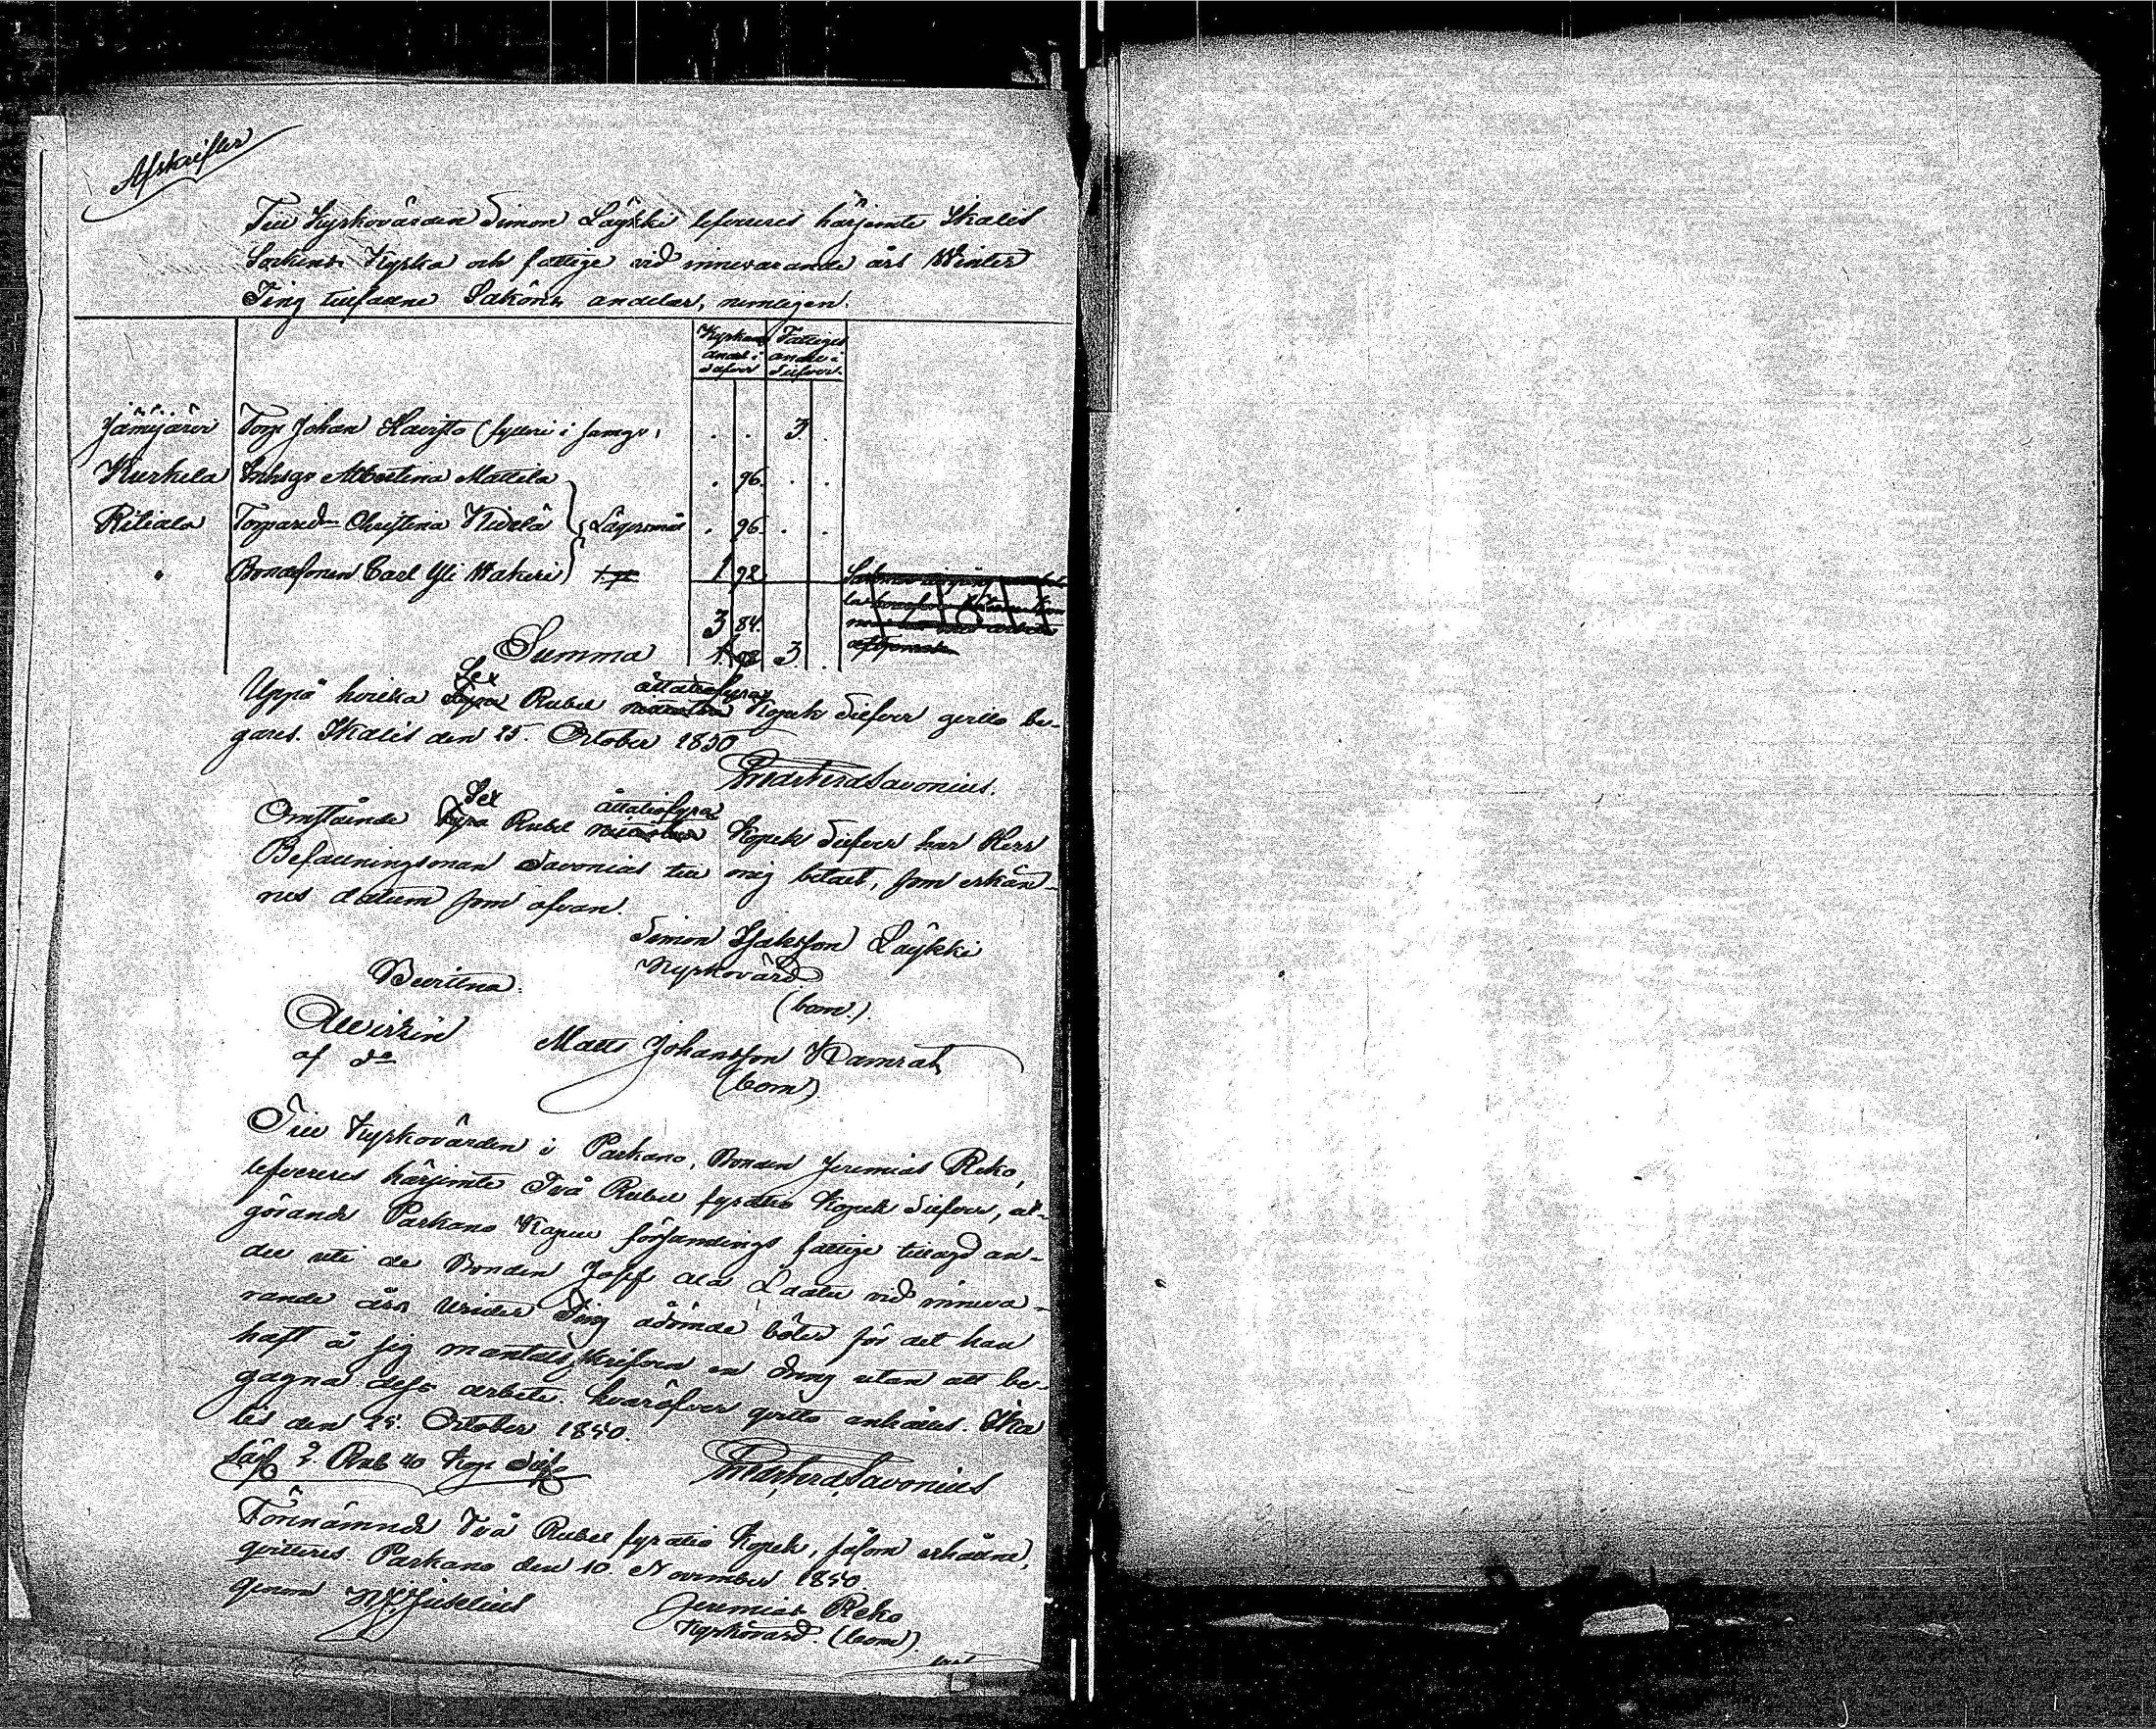 Afskrifter
Till Kyrkovärden Simon Läykki lefvereres härjemte Ikalis
Sockens Kyrka och fattige vid innevarande års Winter
Ting tillfallne Saköres andelar, nemligen.
Kyrkans andel i Silfver
Fattiges andel i Silfver
Jämijärvi Torp Johan Havisto (fylleri i samqv, . . 3 .
Kurkela Inhsgs Albertina Mattila . 96. . .
Riliala Torparedr Christina Kivelä } Lägersmål . 96. . .
" Bondesonen Carl Yli Wakeri 1 92
3 84.
Summa 1 92 3 .
Sex åttatiofyra
Uppå hvilka Fyra Rubel Kopek Silfver qvitto be-
gäres. Ikalis den 25. October 1850
Fredr Ferd Savonius.
Sex åttatiofyra
Omstående Fyra Rubel Kopek Silfver har Herr
Befallningsman Savonius till mig betalt, som erkän-
nes datum som ofvan.
Simon Isaksson Läykki
Kyrkovärd
(bom.).
Bevittna:
Matts Johansson Kamrat
af do (bom)
Till Kyrkovärden i Parkano, Bonden Jeremias Reko,
lefvereres härjemte Två Rubel fyratio Kopek Silfver, ut-
görande Parkano Kapell församlings fattige tillagd an-
del uti de Bonden Josef Ala Laatu vid inneva-
rande års Winter Ting ådömde böter för det han
haft å sig mantalsskrifven en dräng utan att be-
gagna dess arbete. hvaröfver qvitto anhålles. Ika
lis den 25. October 1850.
Säg 2. Rub 40 Kop Silfr Fredr Ferd Savonius
Förenämnde Två Rubel fyratio Kopek, såsom erhållne,
qvitteres. Parkano den 10 November 1850
Jeremias Reko
genom
Kyrkovärd. (bom).